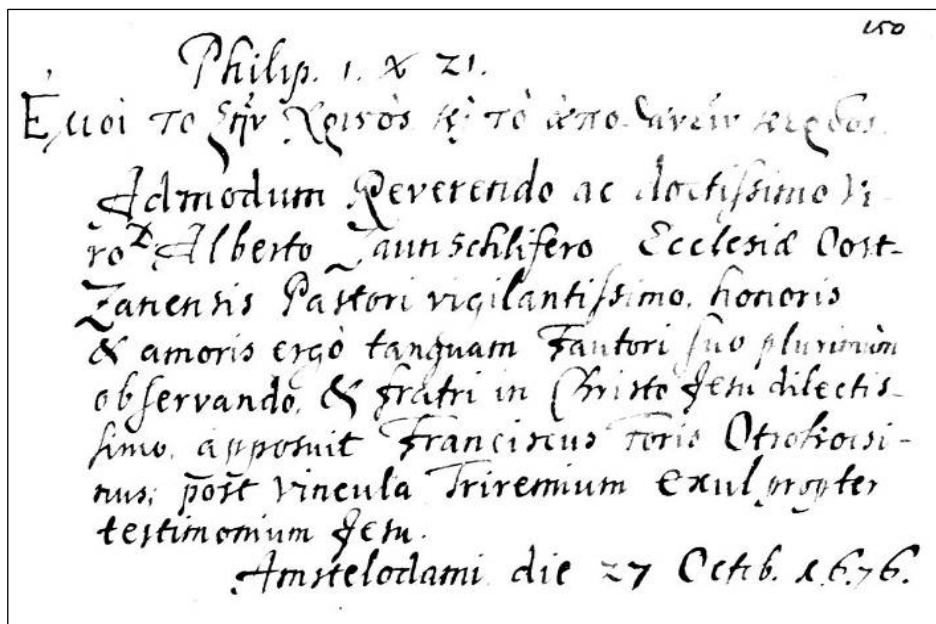 150
Philip. 1. ꝟ 21.
Ἐμοὶ το ζῇν Χριστὸς κ̀ τὸ ἀποθανεῖν κερδος.
Admodum Reverendo ac doctissimo Vi-
ro D. Alberto Zaunschlifero Ecclesiæ Oost-
Zanensis Pastori vigilantissimo, honoris
& amoris ergò tanquam Fautori suo plurimùm
observando, & fratri in Christo Jesu dilectis-
simo, apposuit Franciscus Foris Otrokocsi-
nus, post vincula Triremium exul propter
testimonium Jesu.
Amstelodami die 27 Octob. 1676.